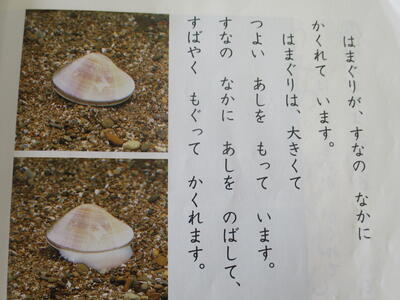 はまぐりが、すなの なかに
かくれて います。
はまぐりは、大きくて
つよい あしを もって います。
すなの なかに あしを のばして、
すばやく もぐって かくれます。